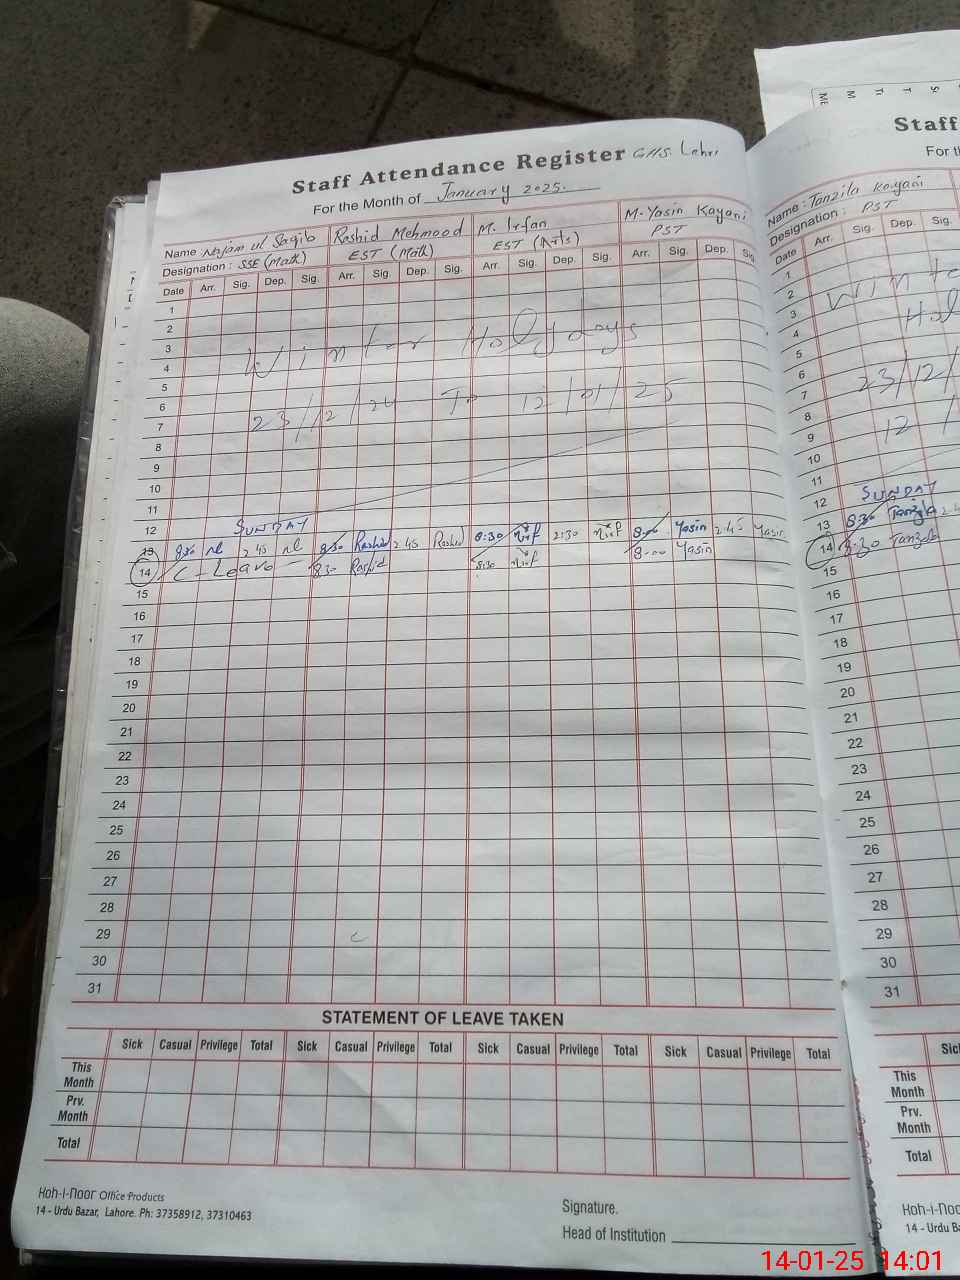 Staff Attendance Register GHS. Lehri
For the Month of January 2025.
Name Najam ul Saqib Rashid Mehmood M. Irfan M-Yasin Kayani
Designation : SSE (Math) EST (Math) EST (Arts) PST
Date Arr. Sig. Dep. Sig. Arr. Sig. Dep. Sig. Arr. Sig. Dep. Sig. Arr. Sig. Dep. Sig.
1
2
3
4
Winter Holydays
5
6
7
23/12/24 To 12/01/25
8
9
10
11
12 SUNDAY
13 8:30 2:45 8:30 Rashid 2:45 Rashid 8:30 2:30 8:00 Yasin 2:45 Yasin
14 C-Leave 8:30 Rashid 8:30 8:00 Yasin
15
16
17
18
19
20
21
22
23
24
25
26
27
28
29
30
31
STATEMENT OF LEAVE TAKEN
Sick Casual Privilege Total Sick Casual Privilege Total Sick Casual Privilege Total Sick Casual Privilege Total
This Month
Prv. Month
Total
Koh-i-Noor Office Products
14 - Urdu Bazar, Lahore. Ph: 37358912, 37310463
Signature.
Head of Institution
Staff
For th
Name : Tanzila Kayani
Designation : PST
Date Arr. Sig. Dep. Sig.
1
2
3
4
5
6
7
23/12/
8
9
12 /
10
11
12 SUNDAY
13 8:30 Tanzila
14 8:30 Tanzila
15
16
17
18
19
20
21
22
23
24
25
26
27
28
29
30
31
This Month
Prv. Month
Total
Koh-i-Noo
14 - Urdu B
14-01-25 14:01